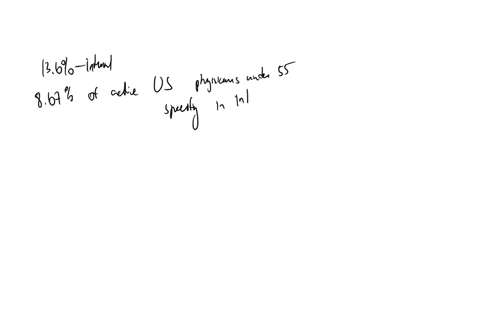 13.6% - internal
8.67% of active US physicians under 55
specialty in Inl